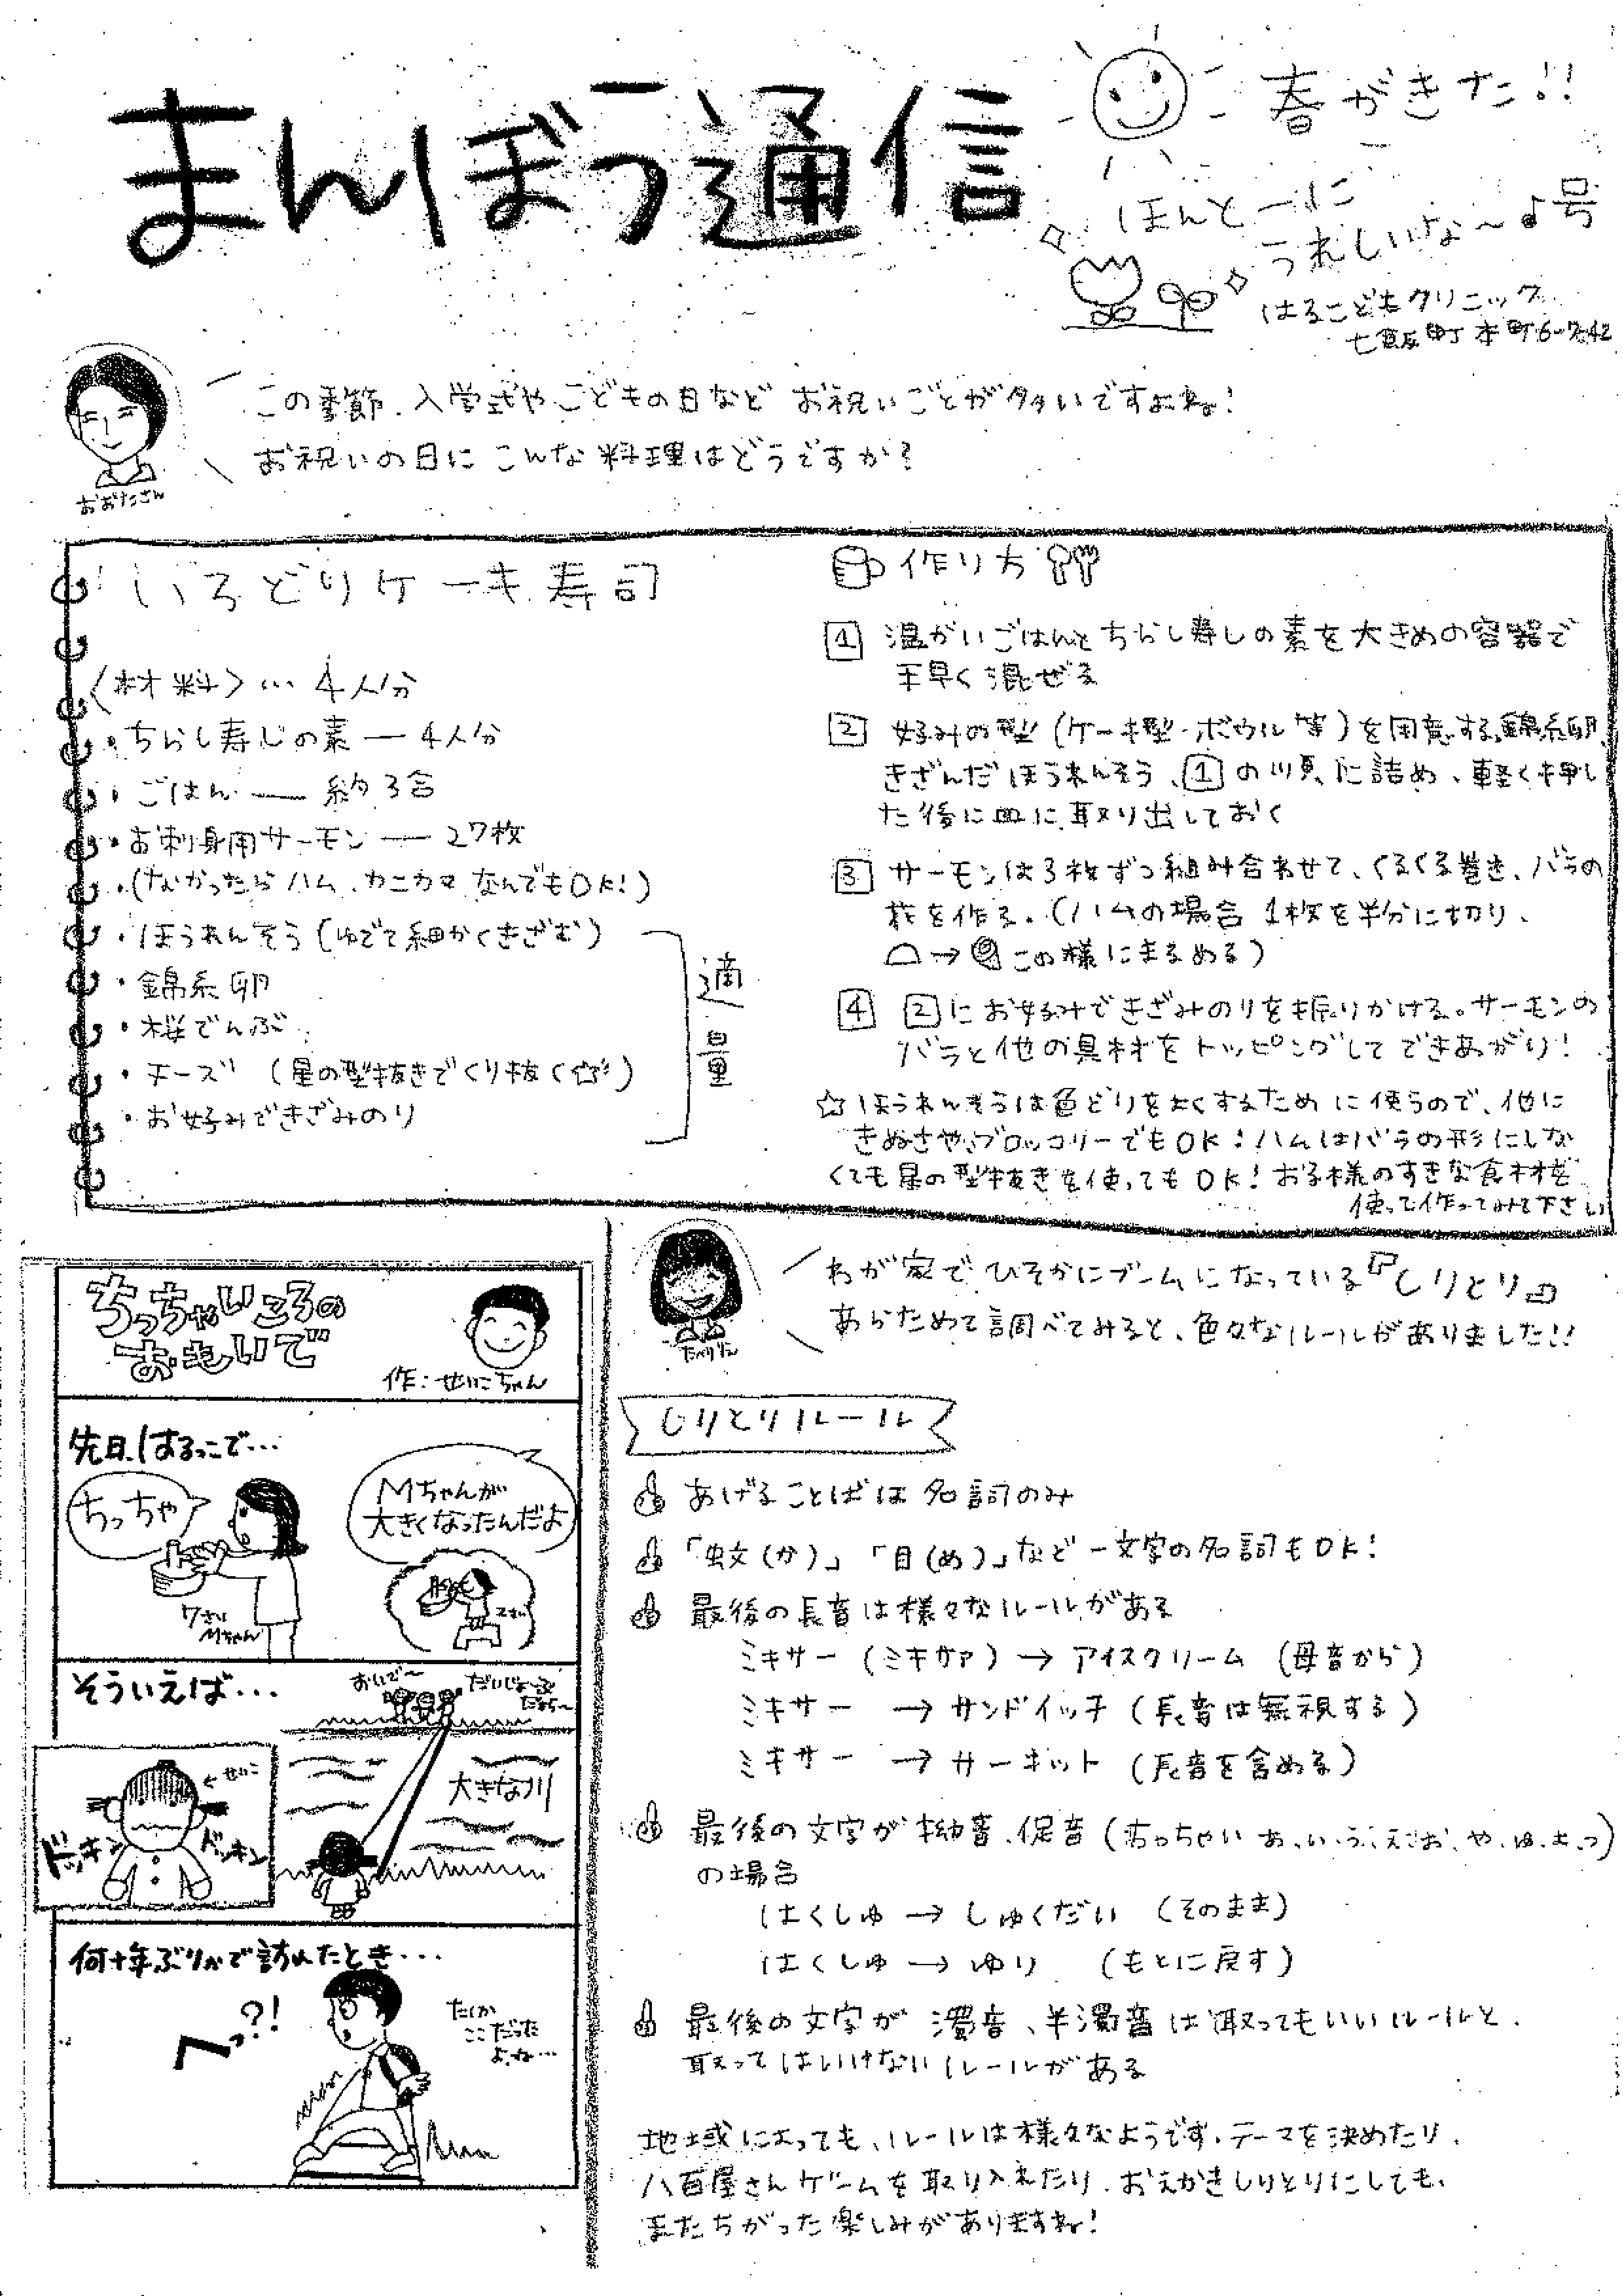 まんぼう通信
春がきた!!
ほんとーに
うれしいな〜♪号
はるこどもクリニック
七飯町本町6-7-42
この季節、入学式やこどもの日など お祝いごとが多いですよね!
お祝いの日に こんな料理はどうですか?
おおたさん
いろどりケーキ寿司
〈材料〉… 4人分
・ちらし寿しの素 — 4人分
・ごはん — 約3合
・お刺身用サーモン — 27枚
・(なかったらハム、カニカマ なんでもOK!)
・ほうれんそう(ゆでて細かくきざむ)
・錦糸卵
・桜でんぶ
・チーズ (星の型抜きでくり抜く☆)
・お好みできざみのり
適量
作り方
1 温かいごはんとちらし寿しの素を大きめの容器で
手早く混ぜる
2 好みの型(ケーキ型・ボウル等)を用意する。錦糸卵、
きざんだほうれんそう、1の順に詰め、軽く押し
た後に皿に取り出しておく
3 サーモンは3枚ずつ組み合わせて、くるくる巻き、バラの
花を作る。(ハムの場合 1枚を半分に切り、
→ この様にまるめる)
4 2にお好みできざみのりを振りかける。サーモンの
バラと他の具材をトッピングしてできあがり!
☆ ほうれんそうは色どりを良くするために使うので、他に
きぬさや、ブロッコリーでもOK!ハムはバラの形にしな
くても星の型抜きを使ってもOK!お子様のすきな食材を
使って作ってみて下さい
ちっちゃいころの
おもいで
作:せいこちゃん
先日、はるっこで…
ちっちゃ
Mちゃんが
大きくなったんだよ
7さい
Mちゃん
2さい
そういえば…
おいで〜
だいじょーぶ
だから〜
大きな川
←せいこ
ドッキン
ドッキン
何十年ぶりかで訪れたとき…
へっ?!
たしか
ここだった
よね…
わが家でひそかにブームになっている『しりとり』
あらためて調べてみると、色々なルールがありました!!
しりとりルール
あげることばは名詞のみ
「蚊(か)」「目(め)」など一文字の名詞もOK!
最後の長音は様々なルールがある
ミキサー (ミキサァ) → アイスクリーム (母音から)
ミキサー → サンドイッチ (長音は無視する)
ミキサー → サーキット (長音を含める)
最後の文字が拗音、促音(ちっちゃい あ、い、う、え、お、や、ゆ、よ、つ)
の場合
はくしゅ → しゅくだい (そのまま)
はくしゅ → ゆり (もとに戻す)
最後の文字が 濁音、半濁音は取ってもいいルールと、
取ってはいけないルールがある
地域によっても、ルールは様々なようです。テーマを決めたり、
八百屋さんゲームを取り入れたり、おえかきしりとりにしても、
またちがった楽しみがありますね!